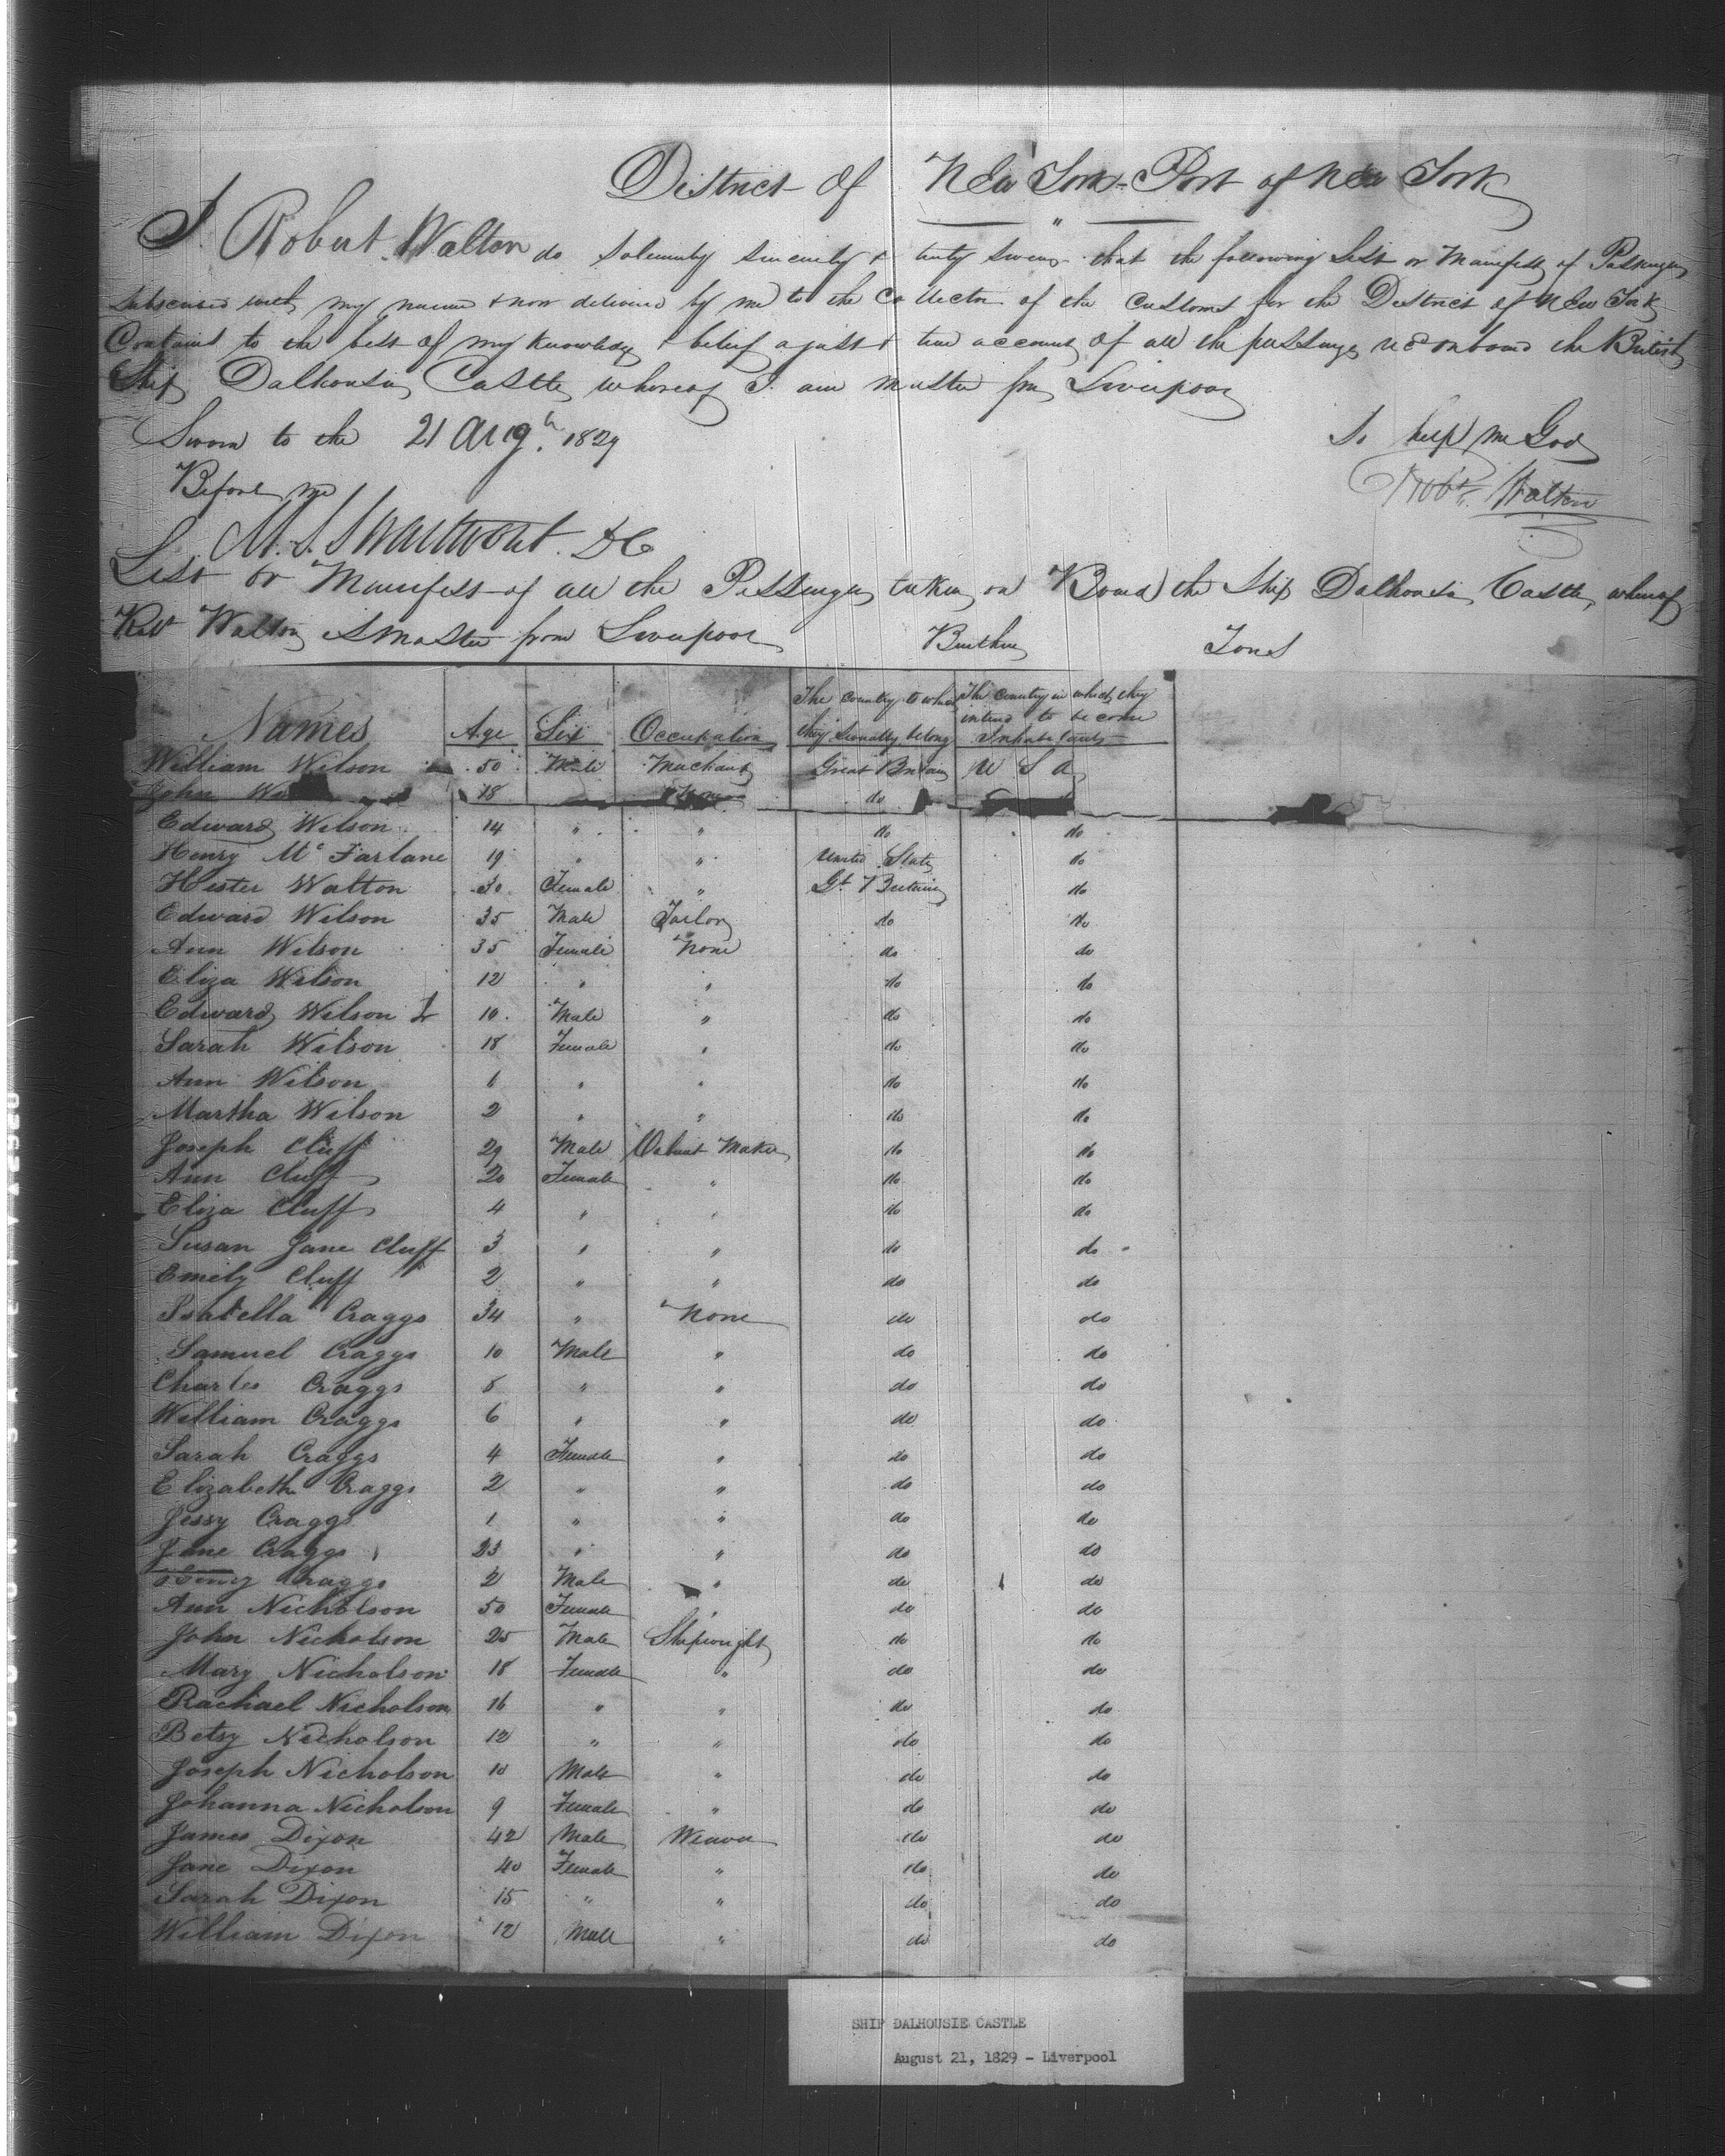 District of New York - Port of New York
I Robert Walton do Solemnly Sincerely & truly Swear that the following List or Manifest of Passengers
Subscribed with my name & now delivered by me to the Collector of the Customs for the District of New York
Contains to the best of my knowledge & belief a just & true account of all the passengers on board the British
Ship Dalhousie Castle whereof I am master from Liverpool
Sworn to the 21 Augt. 1829 So help me God
Before me Robt. Walton
M. S. Swartwout. DC
List or Manifest of all the Passengers taken on Board the Ship Dalhousie Castle, whereof
Robt Walton is Master from Liverpool Burthen Tons
Names Age Sex Occupation The country to which they severally belong The Country in which they intend to become Inhabitants
William Wilson 50 Male Merchant Great Britain U S A
John 18 None do
Edward Wilson 14 " " do do
Henry Mc Farlane 19 " " United States do
Hester Walton 30 Female " Gt Britain do
Edward Wilson 35 Male Tailor do do
Ann Wilson 35 Female None do do
Eliza Wilson 12 " " do do
Edward Wilson Jr 10 Male " do do
Sarah Wilson 18 Female " do do
Ann Wilson 6 " " do do
Martha Wilson 2 " " do do
Joseph Cluff 29 Male Cabinet Maker do do
Ann Cluff 20 Female " do do
Eliza Cluff 4 " " do do
Susan Jane Cluff 3 " " do do
Emily Cluff 2 " " do do
Isabella Craggs 34 " None do do
Samuel Craggs 10 Male " do do
Charles Craggs 8 " " do do
William Craggs 6 " " do do
Sarah Craggs 4 Female " do do
Elizabeth Craggs 2 " " do do
Jessy Craggs 1 " " do do
Jane Craggs 23 " " do do
Craggs 2 Male " do do
Ann Nicholson 50 Female " do do
John Nicholson 25 Male Shipwright do do
Mary Nicholson 18 Female " do do
Rachael Nicholson 16 " " do do
Betsy Nicholson 12 " " do do
Joseph Nicholson 10 Male " do do
Johanna Nicholson 9 Female " do do
James Dixon 42 Male Weaver do do
Jane Dixon 40 Female " do do
Sarah Dixon 15 " " do do
William Dixon 12 Male " do do
SHIP DALHOUSIE CASTLE
August 21, 1829 - Liverpool